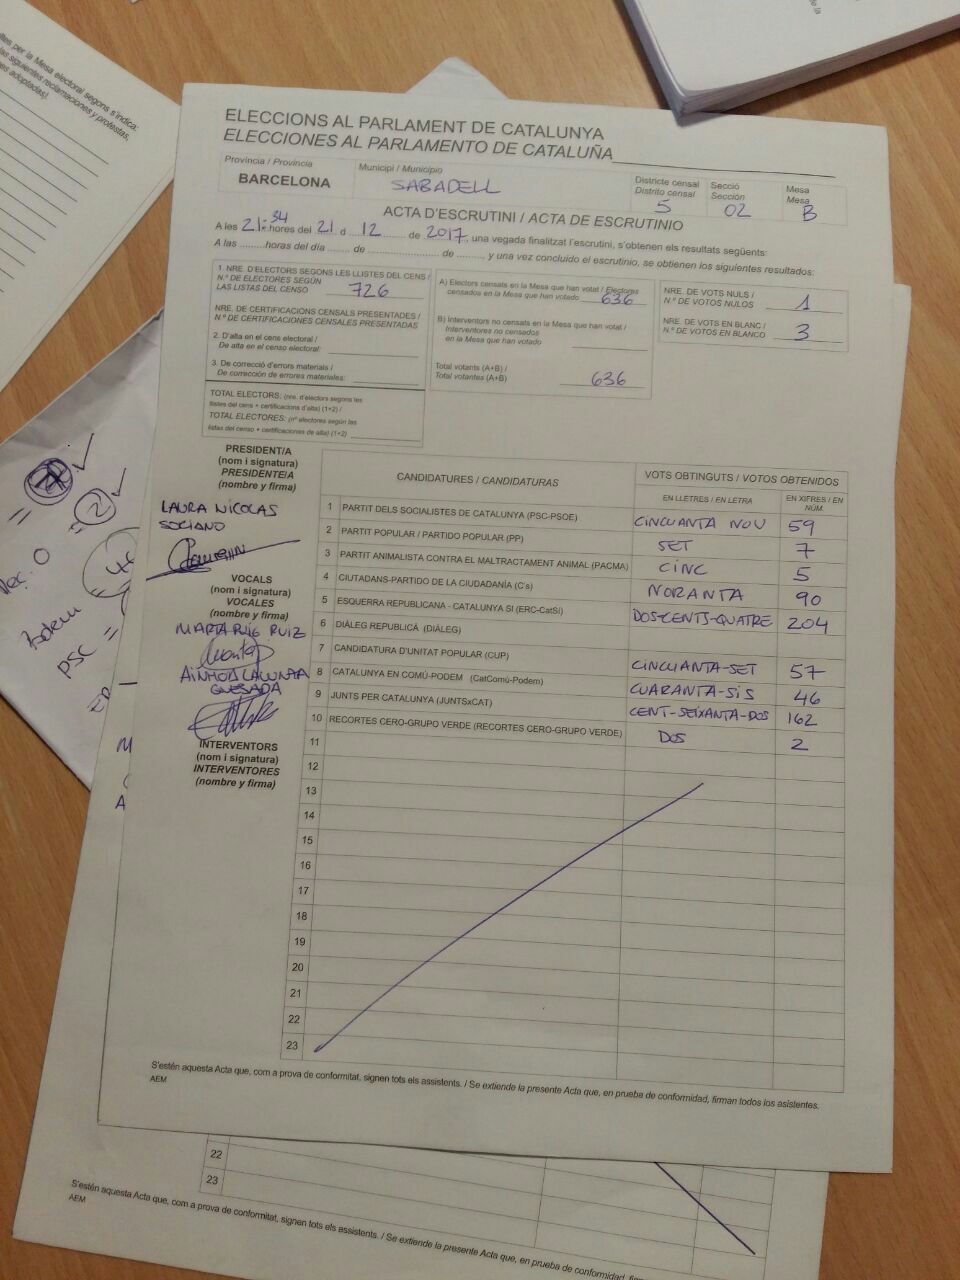 ELECCIONS AL PARLAMENT DE CATALUNYA
ELECCIONES AL PARLAMENTO DE CATALUÑA
Província / Provincia
BARCELONA
Municipi / Municipio
SABADELL
Districte censal
Distrito censal
5
Secció
Sección
02
Mesa
Mesa
B
ACTA D'ESCRUTINI / ACTA DE ESCRUTINIO
A les 21:34 hores del 21 d 12 de 2017, una vegada finalitzat l'escrutini, s'obtenen els resultats següents:
A las .........horas del día ....... de ........................ de ........, y una vez concluido el escrutinio, se obtienen los siguientes resultados:
1. NRE. D'ELECTORS SEGONS LES LLISTES DEL CENS /
N.º DE ELECTORES SEGÚN
LAS LISTAS DEL CENSO 726
NRE. DE CERTIFICACIONS CENSALS PRESENTADES /
N.º DE CERTIFICACIONES CENSALES PRESENTADAS
2. D'alta en el cens electoral /
De alta en el censo electoral:
3. De correcció d'errors materials /
De corrección de errores materiales:
TOTAL ELECTORS: (nre. d'electors segons les
llistes del cens + certificacions d'alta) (1+2) /
TOTAL ELECTORES: (nº electores según las
listas del censo + certificaciones de alta) (1+2)
A) Electors censats en la Mesa que han votat / Electores
censados en la Mesa que han votado 636
B) Interventors no censats en la Mesa que han votat /
Interventores no censados
en la Mesa que han votado
Total votants (A+B) /
Total votantes (A+B) 636
NRE. DE VOTS NULS /
N.º DE VOTOS NULOS 1
NRE. DE VOTS EN BLANC /
N.º DE VOTOS EN BLANCO 3
PRESIDENT/A
(nom i signatura)
PRESIDENTE/A
(nombre y firma)
LAURA NICOLAS
SORIANO
VOCALS
(nom i signatura)
VOCALES
(nombre y firma)
MARTA PUIG RUIZ
QUESADA
INTERVENTORS
(nom i signatura)
INTERVENTORES
(nombre y firma)
CANDIDATURES / CANDIDATURAS
VOTS OBTINGUTS / VOTOS OBTENIDOS
EN LLETRES / EN LETRA
EN XIFRES / EN NÚM.
1 PARTIT DELS SOCIALISTES DE CATALUNYA (PSC-PSOE) CINCUANTA NOU 59
2 PARTIT POPULAR / PARTIDO POPULAR (PP) SET 7
3 PARTIT ANIMALISTA CONTRA EL MALTRACTAMENT ANIMAL (PACMA) CINC 5
4 CIUTADANS-PARTIDO DE LA CIUDADANÍA (C's) NORANTA 90
5 ESQUERRA REPUBLICANA - CATALUNYA SI (ERC-CatSí) DOS-CENTS-QUATRE 204
6 DIÀLEG REPUBLICÀ (DIÀLEG)
7 CANDIDATURA D'UNITAT POPULAR (CUP) CINCUANTA-SET 57
8 CATALUNYA EN COMÚ-PODEM (CatComú-Podem) CUARANTA-SIS 46
9 JUNTS PER CATALUNYA (JUNTSxCAT) CENT-SEIXANTA-DOS 162
10 RECORTES CERO-GRUPO VERDE (RECORTES CERO-GRUPO VERDE) DOS 2
11
12
13
14
15
16
17
18
19
20
21
22
23
S'estén aquesta Acta que, com a prova de conformitat, signen tots els assistents. / Se extiende la presente Acta que, en prueba de conformidad, firman todos los asistentes.
AEM
22
23
S'estén aquesta Acta que, com a prova de conformitat, signen tots els assistents. / Se extiende la presente Acta que, en prueba de conformidad,
AEM
per la Mesa electoral segons s'indica:
siguientes reclamaciones y protestas,
adoptadas)
PSC =